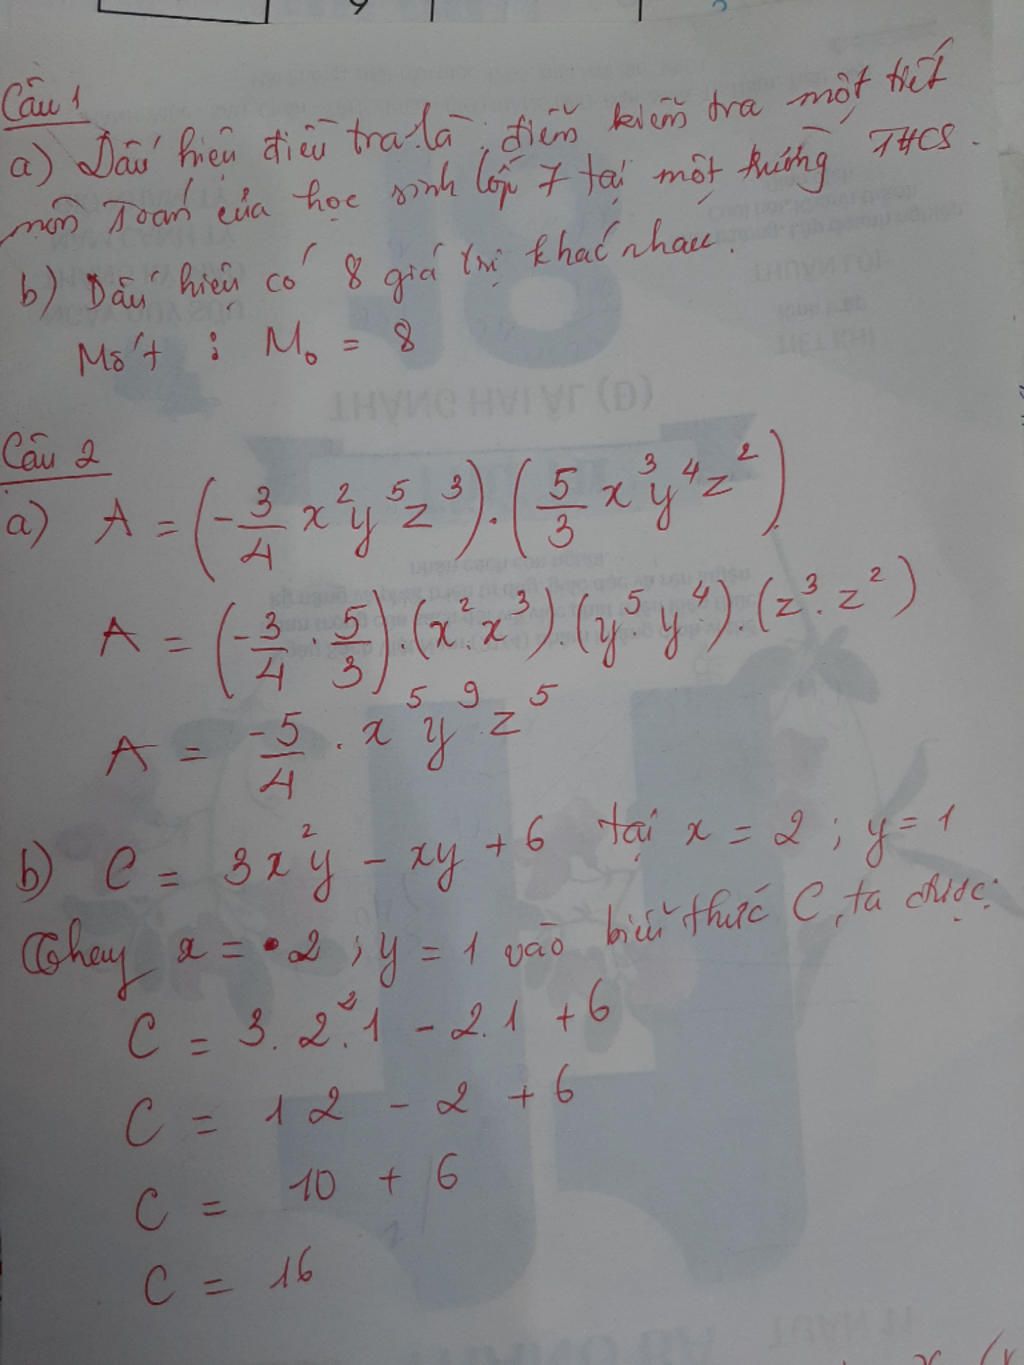 Câu 1
a) Dấu hiệu điều tra là: điểm kiểm tra một tiết
môn Toán của học sinh lớp 7 tại một trường THCS.
b) Dấu hiệu có 8 giá trị khác nhau.
Mốt : M₀ = 8
Câu 2
a) A = (-3/4 x²y⁵z³).(5/3 x³y⁴z²)
A = (-3/4 . 5/3).(x².x³).(y⁵.y⁴).(z³.z²)
A = -5/4 . x⁵y⁹z⁵
b) C = 3x²y - xy + 6 tại x = 2 ; y = 1
Thay x = 2 ; y = 1 vào biểu thức C, ta được:
C = 3.2².1 - 2.1 + 6
C = 12 - 2 + 6
C = 10 + 6
C = 16
THÁNG HAI ÂL (Đ)